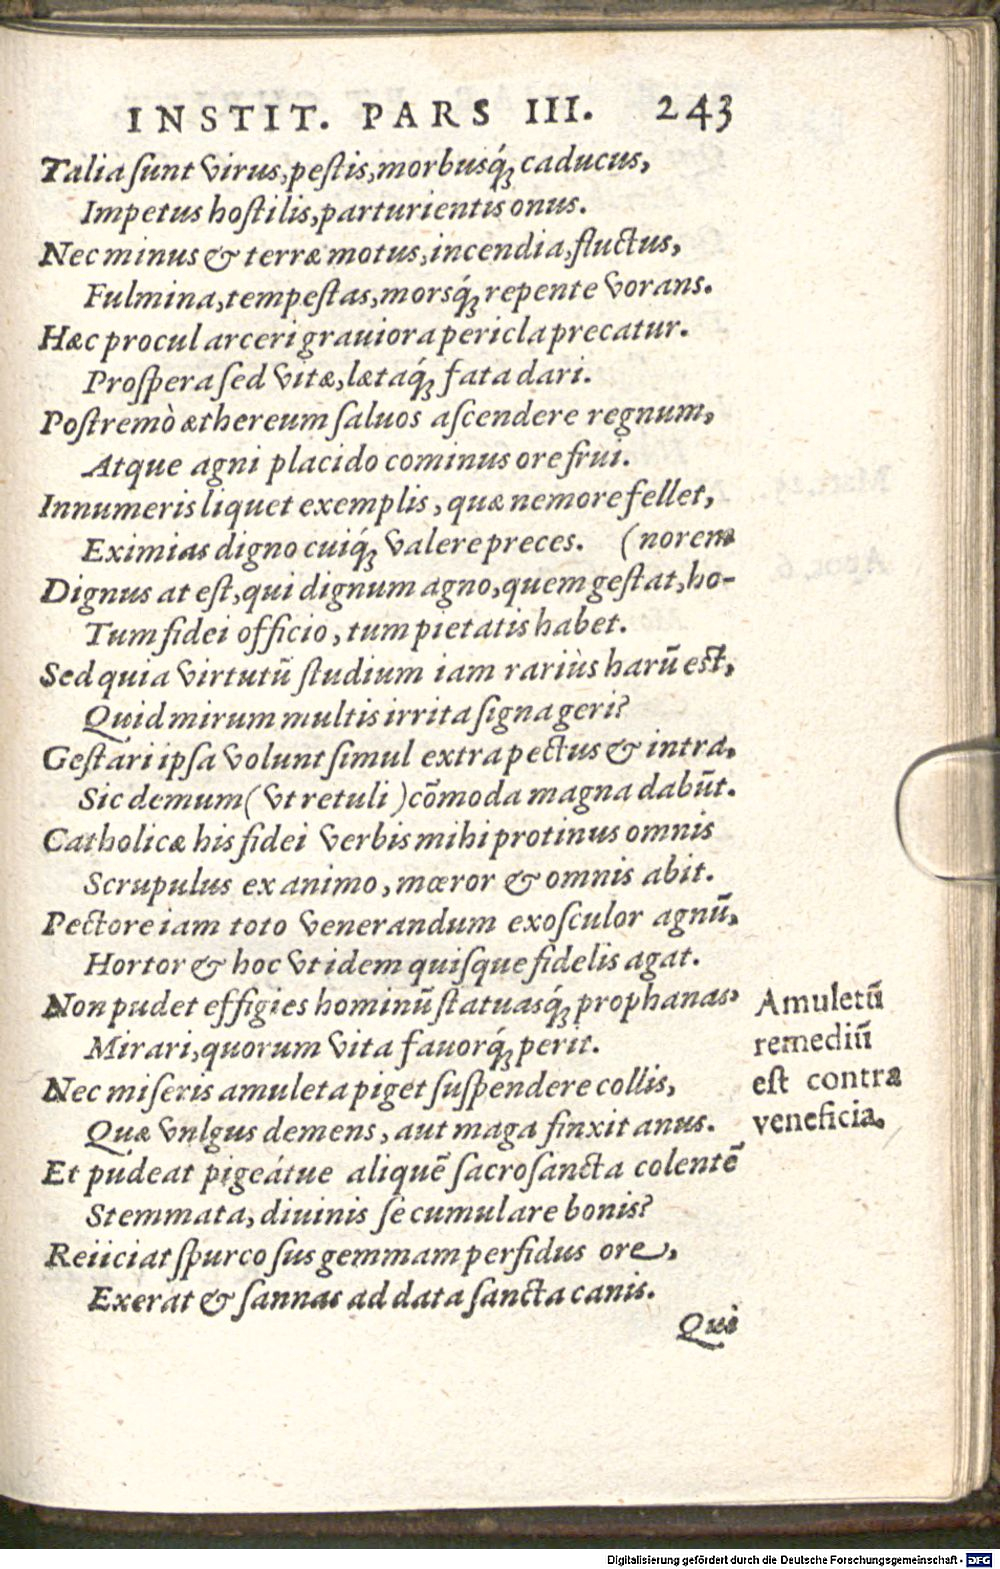 INSTIT. PARS III. 243
Talia ſunt virus, peſtis, morbusq́; caducus,
Impetus hoſtilis, parturientis onus.
Nec minus & terræ motus, incendia, fluctus,
Fulmina, tempeſtas, morsq́; repente vorans.
Hæc procul arceri grauiora pericla precatur.
Proſpera ſed vitæ, lætaq́; fata dari.
Poſtremò æthereum ſaluos aſcendere regnum,
Atque agni placido cominus ore frui.
Innumeris liquet exemplis, quæ nemo refellet,
Eximias digno cuiq́; valere preces. (norem
Dignus at eſt, qui dignum agno, quem geſtat, ho-
Tum fidei officio, tum pietatis habet.
Sed quia virtutũ ſtudium iam rariùs harũ eſt,
Quid mirum multis irrita ſigna geri?
Geſtari ipſa volunt ſimul extra pectus & intra.
Sic demum (vt retuli) cõmoda magna dabũt.
Catholicæ his fidei verbis mihi protinus omnis
Scrupulus ex animo, mœror & omnis abit.
Pectore iam toto venerandum exoſculor agnũ,
Hortor & hoc vt idem quiſque fidelis agat.
Non pudet effigies hominũ ſtatuasq́; prophanas
Mirari, quorum vita fauorq́; perit.
Nec miſeris amuleta piget ſuſpendere collis,
Quæ vnlgus demens, aut maga finxit anus.
Et pudeat pigeátue aliquẽ ſacroſancta colentẽ
Stemmata, diuinis ſe cumulare bonis?
Reiiciat ſpurco ſus gemmam perfidus ore,
Exerat & ſannas ad data ſancta canis.
Qui
Amuletũ
remediũ
eſt contra
veneficia.
Digitalisierung gefördert durch die Deutsche Forschungsgemeinschaft - DFG